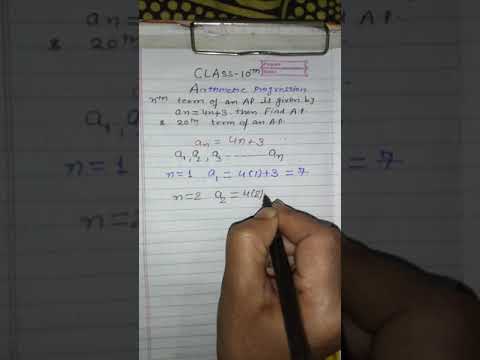 CLASS-10th
Arithmetic progression
nth term of an AP is given by
an = 4n+3. then Find A.P.
& 20th term of an AP.
an = 4n+3
a1, a2, a3 ------- an
n=1 a1 = 4(1)+3 = 7
n=2 a2 = 4(2)